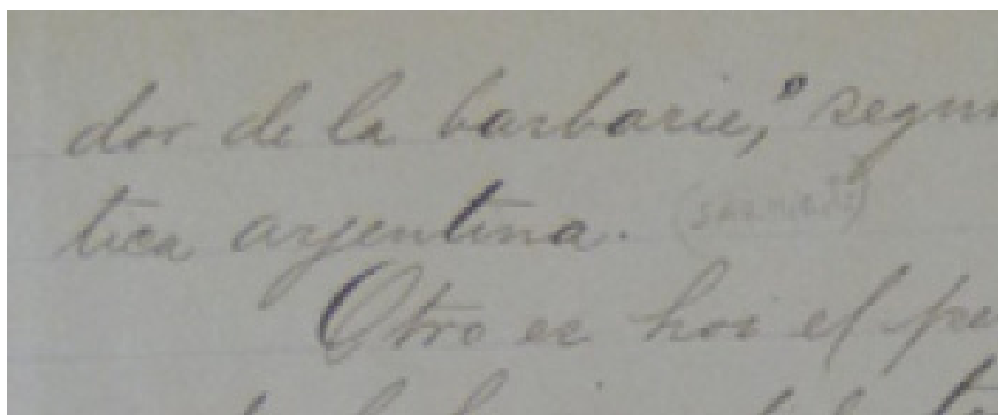 dor de la barbarie,° segun
tica argentina. (Sarmiento)
Otro es hoi el pe